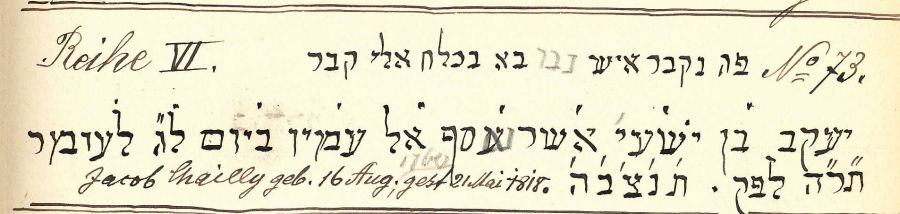 Reihe VI. פה נקבר איש גבר בא בכלח אלי קבר No 73.
יעקב בן ישעי' אשר נאסף אל עמיו ביום לג לעומר
תר"ה לפק. ת'נ'צ'ב'ה'
Jacob Chailly geb. 16 Aug., gest 21 Mai 1818.